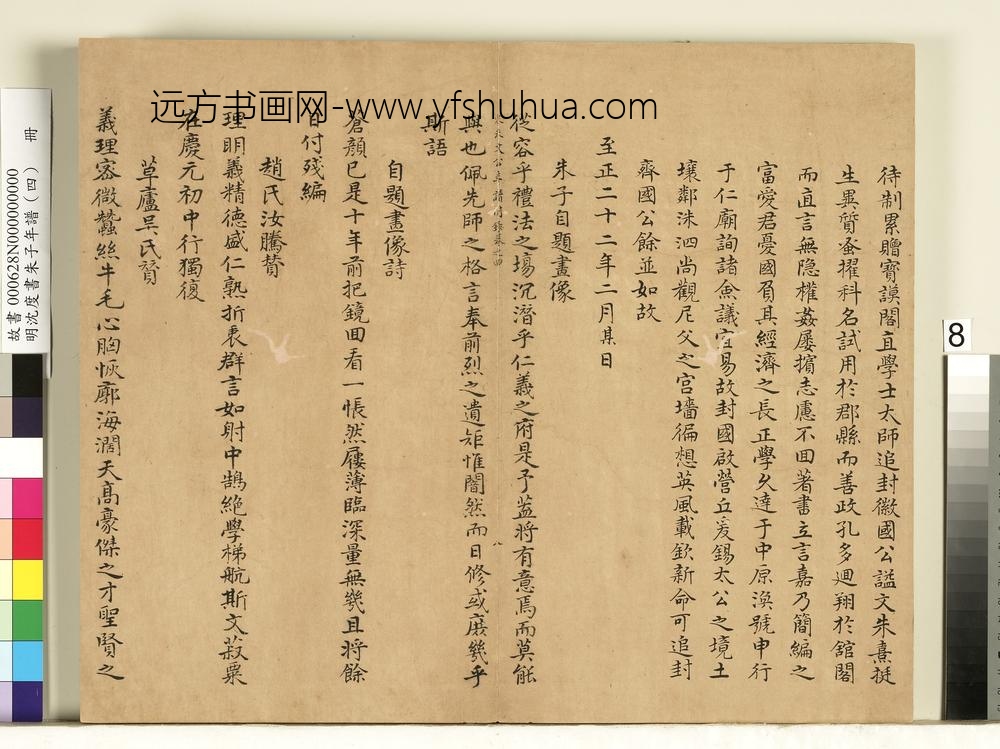 远方书画网-www.yfshuhua.com
待制累贈寶謨閣直學士太師追封徽國公謚文朱熹挺
生異質蚤擢科名試用於郡縣而善政孔多迴翔於舘閣
而直言無隐權姦屢擯志慮不回著書立言嘉乃簡編之
富愛君憂國負其經濟之長正學久達于中原渙號申行
于仁廟詢諸僉議宜易故封國啟營丘爰錫太公之境土
壤鄰洙泗尚觀尼父之宮墻徧想英風載欽新命可追封
齊國公餘並如故
至正二十二年二月某日
朱子自題畫像
從容乎禮法之場沉潛乎仁義之府是予葢將有意焉而莫能
與也佩先師之格言奉前烈之遺矩惟闇然而日修或庶幾乎
斯語
自題畫像詩
蒼顏已是十年前把鏡回看一悵然履薄臨深量無幾且將餘
日付殘編
趙氏汝騰贊
理明義精德盛仁熟折衷群言如射中鵠絶學梯航斯文菽粟
在慶元初中行獨復
草廬吳氏贊
義理密微蠶絲牛毛心胸恢廓海濶天高豪傑之才聖賢之
八
故書000628N000000000
明沈度書朱子年譜(四) 冊
8